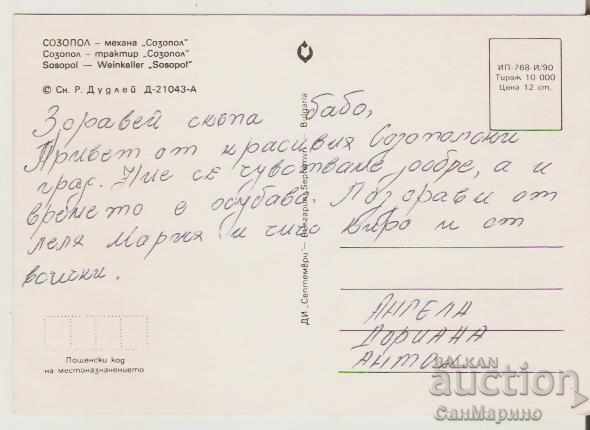 СОЗОПОЛ – механа „Созопол"
Созопол – трактир „Созопол"
Sosopol — Weinkeller „Sosopol"
© Сн. Р. Дудлей Д-21043-А
ИП-768-И/90
Тираж 10 000
Цена 12 ст.
Здравей скъпа бабо,
Привет от красивия Созополски
град. Ние се чувстваме добре, а и
времето е хубаво. Поздрави от
леля Мария и чичо Киро и от
всички.
ДИ „Септември" — България Bulgaria
Ангела
Дориана
Антон
Пощенски код
на местоназначението
BALKAN
auction
СанМарино